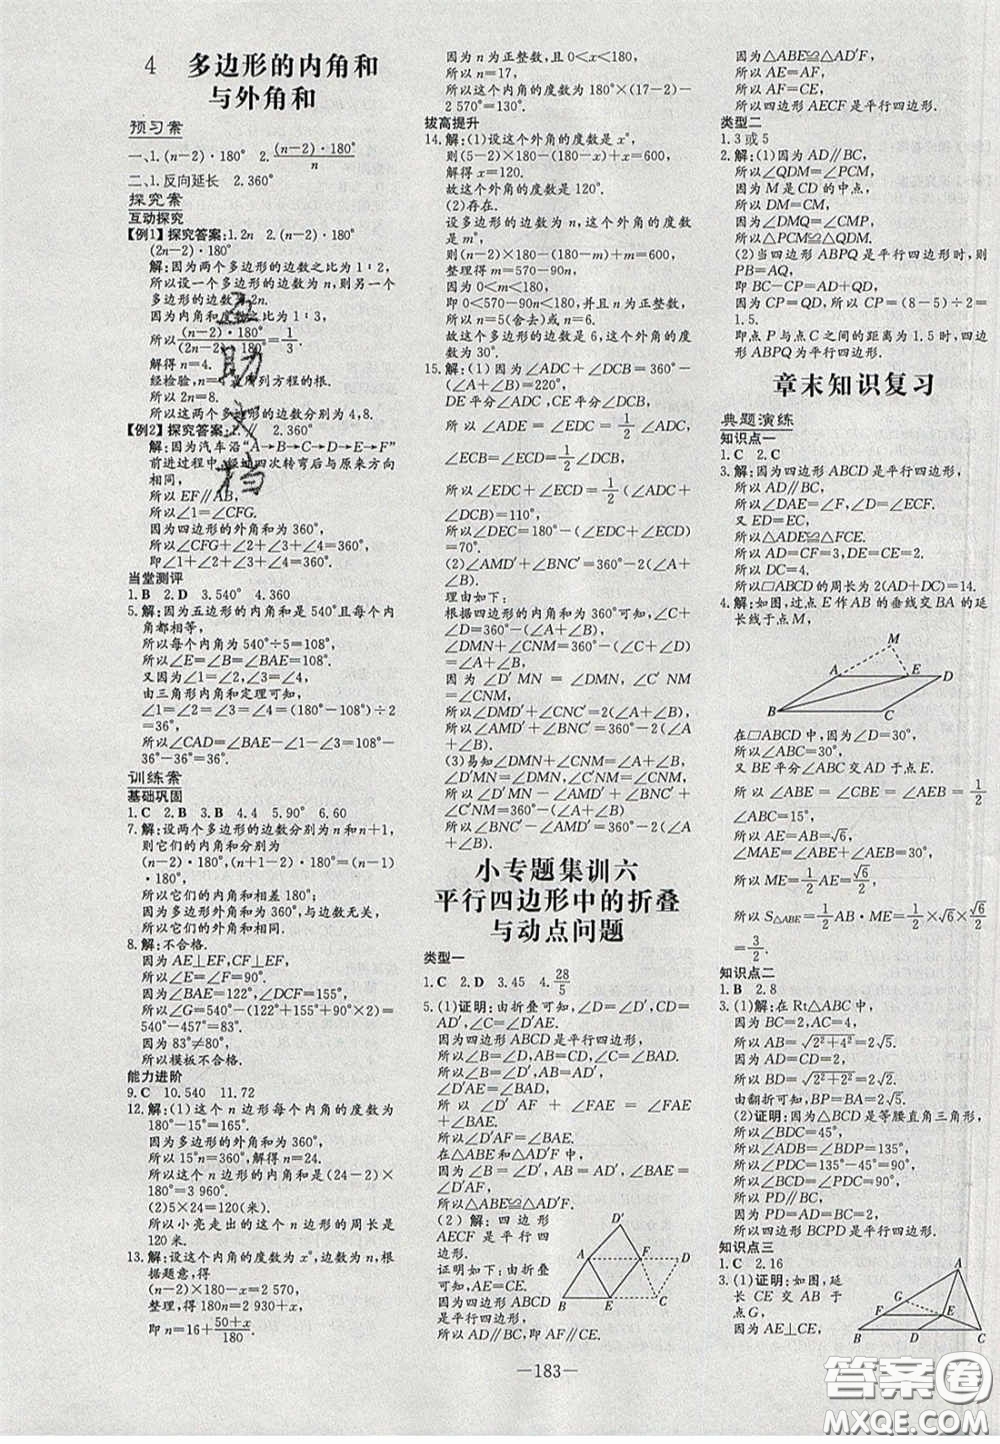 4 多边形的内角和
与外角和
预习案
一、1.(n-2)·180° 2.(n-2)·180°/n
二、1.反向延长 2.360°
探究案
互动探究
【例1】探究答案:1.2n 2.(n-2)·180°
(2n-2)·180°
解:因为两个多边形的边数之比为1∶2,
所以设一个多边形的边数为n,则另一个
多边形的边数为2n.
因为内角和度数之比为1∶3,
所以(n-2)·180°/(2n-2)·180°=1/3.
解得n=4.
经检验,n=4是所列方程的根.
所以2n=8.
所以这两个多边形的边数分别为4,8.
【例2】探究答案:1.∥ 2.360°
解:因为汽车沿“A→B→C→D→E→F”
前进过程中,经过四次转弯后与原来方向
相同,
所以EF∥AB,
所以∠1=∠CFG.
因为四边形的外角和为360°,
所以∠CFG+∠2+∠3+∠4=360°,
即∠1+∠2+∠3+∠4=360°.
当堂测评
1.B 2.D 3.540° 4.360°
5.解:因为五边形的内角和是540°且每个内
角都相等,
所以每个内角为540°÷5=108°,
所以∠E=∠B=∠BAE=108°.
又因为∠1=∠2,∠3=∠4,
由三角形内角和定理可知,
∠1=∠2=∠3=∠4=(180°-108°)÷2
=36°,
所以∠CAD=∠BAE-∠1-∠3=108°-
36°-36°=36°.
训练案
基础巩固
1.C 2.B 3.B 4.4 5.90° 6.60
7.解:设两个多边形的边数分别为n和n+1,
则它们的内角和分别为
(n-2)·180°,(n+1-2)·180°=(n-1)·
180°,
所以它们的内角和相差180°.
因为多边形的外角和与边数无关,
所以它们的外角和相同.
8.解:不合格.
因为AE⊥EF,CF⊥EF,
所以∠E=∠F=90°.
又因为∠BAE=122°,∠DCF=155°,
所以∠G=540°-(122°+155°+90°+90°)=
540°-457°=83°.
因为83°≠80°,
所以模板不合格.
能力进阶
9.C 10.540 11.72
12.解:(1)这个n边形每个内角的度数为
180°-15°=165°.
因为多边形的外角和为360°,
所以15°n=360°,解得n=24.
所以这个n边形的内角和是(24-2)×
180°=3 960°.
(2)5×24=120(米).
所以小亮走出的这个n边形的周长是
120米.
13.解:设这个内角的度数为x°,边数为n,根
据题意,得
(n-2)×180-x=2 570,
整理,得180n=2 930+x,
即n=16+(50+x)/180.
因为n为正整数,且0<x<180,
所以n=17,
所以这个内角的度数为180°×(17-2)-
2 570°=130°.
拔高提升
14.解:(1)设这个外角的度数是x°,
则(5-2)×180-(180-x)+x=600,
解得x=120.
故这个外角的度数是120°.
(2)存在.
设多边形的边数为n,这个外角的度数
是m°,
则(n-2)×180-(180-m)+m=600,
整理得m=570-90n.
因为0<m<180,
即0<570-90n<180,并且n为正整数,
所以n=5(舍去)或n=6.
故这个多边形的边数是6,这个外角的度
数为30°.
15.解:(1)因为∠ADC+∠DCB=360°-
(∠A+∠B)=220°,
DE平分∠ADC,CE平分∠DCB,
所以∠ADE=∠EDC=1/2∠ADC,
∠ECB=∠DCE=1/2∠DCB,
所以∠EDC+∠ECD=1/2(∠ADC+
∠DCB)=110°,
所以∠DEC=180°-(∠EDC+∠ECD)
=70°.
(2)∠AMD′+∠BNC′=360°-2(∠A+
∠B).
理由如下:
根据四边形的内角和为360°可知,∠D+
∠C=360°-(∠A+∠B),
∠DMN+∠CNM=360°-(∠D+∠C)
=∠A+∠B.
因为∠D′MN=∠DMN,∠C′NM=
∠CNM,
所以∠DMD′+∠CNC′=2(∠A+∠B),
所以∠AMD′+∠BNC′=360°-2(∠A
+∠B).
(3)易知∠DMN+∠CNM=∠A+∠B,
∠D′MN=∠DMN=180°-∠AMN,
∠C′NM=∠CNM,
所以∠DMN+∠CNM=180°-∠AMN
+∠C′NM=∠A+∠B,
所以∠BNC′-∠AMD′=360°-2(∠A+
∠B).
小专题集训六
平行四边形中的折叠
与动点问题
类型一
1.C 2.D 3.45 4.28/5
5.(1)证明:由折叠可知,∠D=∠D′,CD=
AD′,∠C=∠D′AE.
因为四边形ABCD是平行四边形,
所以∠B=∠D,AB=CD,∠C=∠BAD.
所以∠B=∠D′,AB=AD′,
∠D′AE=∠BAD,
所以∠D′AF+∠FAE=∠FAE+
∠BAE,
所以∠D′AF=∠BAE.
在△ABE和△AD′F中,
因为∠D′=∠B,AB=AD′,∠D′AF=
∠BAE,
所以△ABE≌△AD′F.
(2)解:四边形
AECF是平行四
边形.
证明如下:由折叠
可知,AE=CE.
因为四边形ABCD
是平行四边形,
所以AD∥BC,即AF∥CE.
D′
A
F
D
B
E
C
因为△ABE≌△AD′F,
所以AF=AE,
所以AF=CE,
所以四边形AECF是平行四边形.
类型二
1.3或5
2.解:(1)因为AD∥BC,
所以∠QDM=∠PCM.
因为M是CD的中点,
所以DM=CM,
因为∠DMQ=∠CMP,
所以△PCM≌△QDM.
(2)当四边形ABPQ是平行四边形时,则
PB=AQ,
即BC-CP=AD+QD.
因为CP=QD,所以CP=(8-5)÷2=
1.5.
即点P与点C之间的距离为1.5时,四边
形ABPQ为平行四边形.
章末知识复习
典题演练
知识点一
1.C 2.C
3.解:因为四边形ABCD是平行四边形,
所以AD∥BC,
所以∠DAE=∠F,∠D=∠ECF.
又ED=EC,
所以△ADE≌△FCE.
所以AD=CF=3,DE=CE=2.
所以DC=4.
所以▱ABCD的周长为2(AD+DC)=14.
4.解:如图,过点E作AB的垂线交BA的延
长线于点M,
M
A
E
D
B
C
在▱ABCD中,因为∠D=30°,
所以∠ABC=30°.
又BE平分∠ABC交AD于点E.
所以∠ABE=∠CBE=∠AEB=1/2
∠ABC=15°,
所以AE=AB=√6,
所以ME=1/2AE=√6/2.
所以S△ABE=1/2AB·ME=1/2×√6×√6/2
=3/2.
知识点二
1.B 2.8
3.(1)解:在Rt△ABC中,
因为BC=2,AC=4,
所以AB=√2²+4²=2√5.
因为AD=CD=2,
所以BD=√2²+2²=2√2.
由翻折可知,BP=BA=2√5.
(2)证明:因为△BCD是等腰直角三角形,
所以∠BDC=45°,
所以∠PDC=135°-45°=90°,
所以∠BCD=∠PDC=90°,
所以PD∥BC.
因为PD=AD=BC=2,
所以四边形BCPD是平行四边形.
知识点三
1.C 2.16
3.(1)证明:如图,延
长CE交AB于
点G,
因为AE⊥CE,
A
G
E
F
B
D
C
—183—
互助文档
答案圈
MXQE.COM